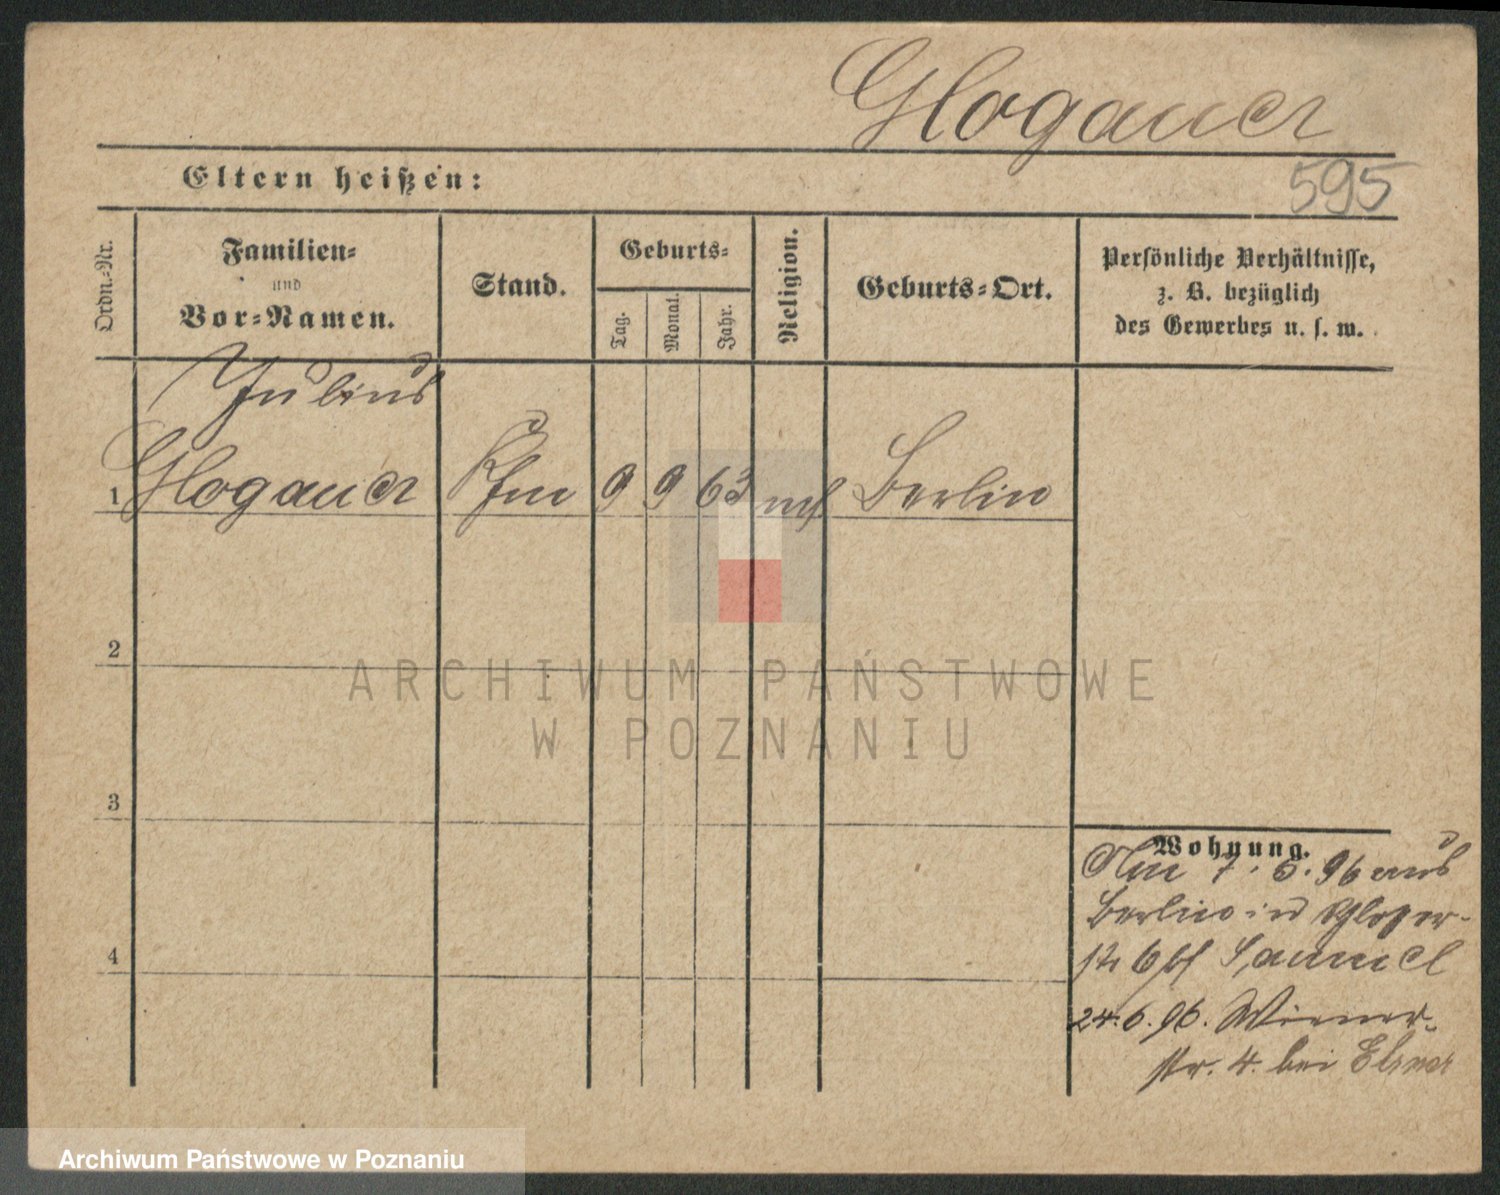 Glogauer
Eltern heißen:
595
Ordn.-Nr.
Familien-
und
Vor-Namen.
Stand.
Geburts-
Tag.
Monat.
Jahr.
Religion.
Geburts-Ort.
Persönliche Verhältnisse,
z. B. bezüglich
des Gewerbes u. s. w.
Julius
1 Glogauer Kfm 9 9 63 Berlin
2
ARCHIWUM PAŃSTWOWE
W POZNANIU
3
Wohnung.
Am 7. 6. 96 aus
Berlin in
6 Samuel
4
24. 6. 96. Wiener-
str. 4. bei Elsner
Archiwum Państwowe w Poznaniu